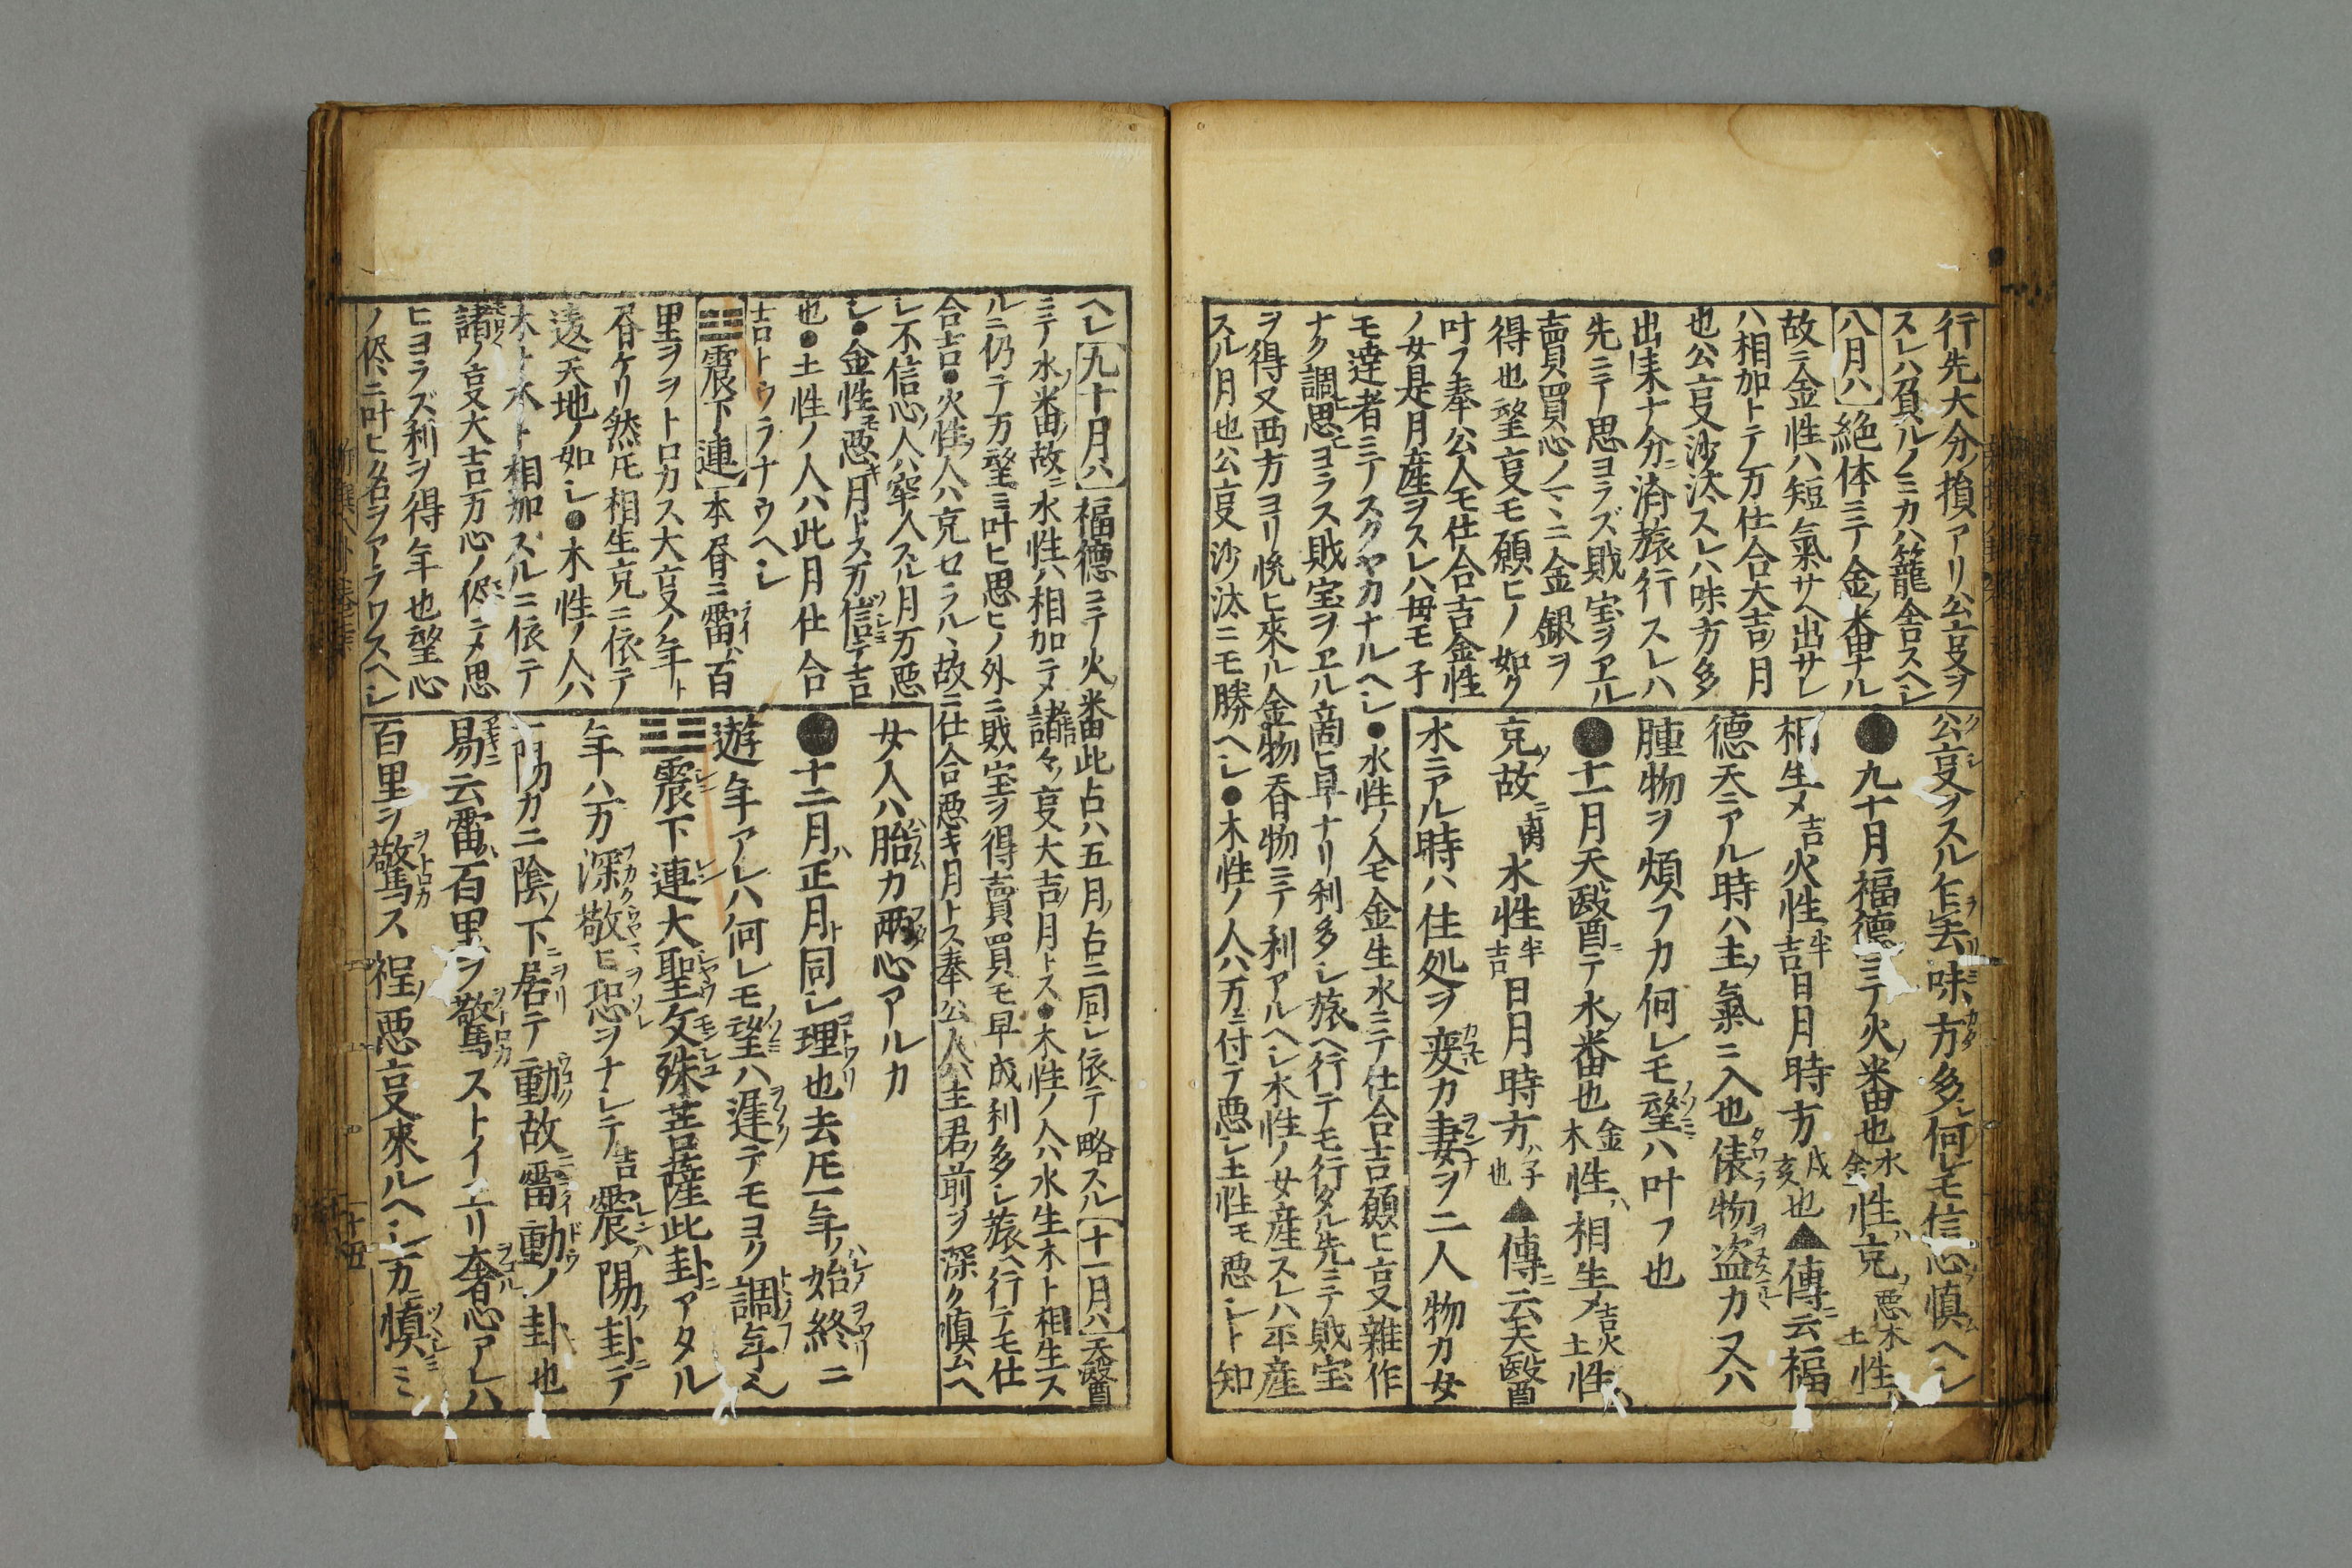 行先大分損アリ公亊ヲ
スレハ負ルノミカハ籠舎スヘシ
八月ハ 絶体ニテ金ノ番ナル
故ニ金性ハ短氣サヘ出サレ
ハ相加トテ万仕合大吉ノ月
也公亊沙汰スレハ味方多
出来ナ分ニ済旅行スレハ
先ニテ思ヨラズ賎宝ヲヱル
賣買心ノマヽニ金銀ヲ
得也望亊モ願ヒノ如ク
叶フ奉公人モ仕合吉金性
ノ女是月産ヲスレハ母モ子
モ達者ニテスクヤカナルヘシ●水性ノ人モ金生水ニテ仕合吉願ヒ亊雑作
ナク調思ヒモヨラス賎宝ヲヱル商ヒ早ナリ利多シ旅ヘ行テモ行タル先ニテ賎宝
ヲ得又西方ヨリ悦ヒ來ル金物呑物ニテ利アルヘシ水性ノ女産スレハ平産
スル月也公亊沙汰ニモ勝ヘシ●木性ノ人ハ万ニ付テ悪シ土性モ悪シト知
公亊ヲスル乍去味方多シ何レモ信心慎ヘシ
●九十月福德ニテ火ノ番也水金性ハ克ノ悪木土性ハ
相生メ吉火性半吉日月時方戌亥也▲傳ニ云福
德天ニアル時ハ主ノ氣ニ入也俵物盗カ又ハ
腫物ヲ煩フカ何レモ望ハ叶フ也
●十一月天醫ニテ水ノ番也金木性ハ相生メ吉火土性ハ
克ノ故ニ凶水性半吉日月時方ハ子也▲傳ニ云天醫
水ニアル時ハ住処ヲ変カ妻ヲ二人物カ女
ヘシ 九十月ハ 福德ニテ火ノ番此占ハ五月ノ占ニ同シ依テ略スル 十一月ハ 天醫
ニテ水ノ番ノ故ニ水性ハ相加テメ諸々ノ亊大吉ノ月トス●木性ノ人ハ水生木ト相生ス
ルニ仍テ万望ミ叶ヒ思ヒノ外ニ賎宝ヲ得賣買モ早成利多シ旅ヘ行テモ仕
合吉●火性ノ人ハ克セラルヽ故ニ仕合悪キ月トス奉公人ハ主君ノ前ヲ深ク慎ムヘ
シ不信心ノ人ハ窂人スル月万悪
シ●金性モ悪キ月トス万信テ吉
也●土性ノ人ハ此月仕合
吉トウラナウヘシ
☳震下連 本昏ニ雷ハ百
里ヲヲトロカス大亊ノ年ト
昏ケリ然氏相生克ニ依テ
遠天地ノ如シ●木性ノ人ハ
木ト木ト相加スルニ依テ
諸ノ亊大吉万心ノ侭ニメ思
ヒヨラズ利ヲ得年也望心
ノ侭ニ叶ヒ名ヲアラワスヘシ
女人ハ胎カ両心アルカ
●十二月ハ正月ト同シ理也去氏一年ノ始終ニ
遊年アレハ何レモ望ハ遅テモヨク調年也
☳震下連大聖文殊菩薩此卦ニアタル
年ハ万深敬ヒ恐ヲナレテ吉震ハ陽ノ卦ニテ
一陽カ二陰ノ下ニ居テ動故ニ雷動ノ卦也
易ニ云雷ハ百里ヲ驚ストイエリ奢心アレハ
百里ヲ驚ス程ノ悪亊來ルヘシ万ニ慎ミ
十五